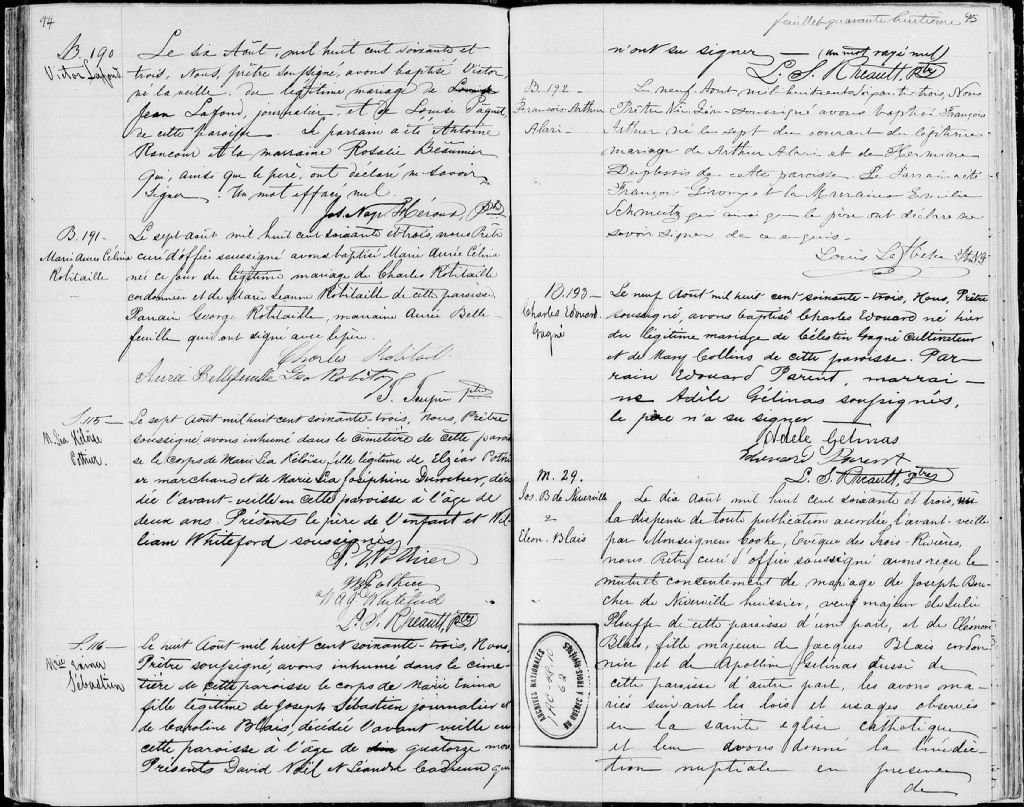 94
B. 190
Victor Lafond
Le six Août, mil huit cent soixante et
trois, Nous, prêtre soussigné, avons baptisé Victor,
né la veille du légitime mariage de
Jean Lafond, journalier, et de Louise Paquet
de cette Paroisse. Le parrain a été Antoine
Rancour et la marraine Rosalie Beaumier
qui, ainsi que le père, ont déclaré ne savoir
signer. Un mot effacé nul.
Jos. Nap. Héroux, Ptre
B. 191
Marie Aurée Célina
Robitaille
Le sept août mil huit cent soixante et trois, nous Prêtre
curé d'office soussigné avons baptisé Marie Aurée Célina
née ce jour du légitime mariage de Charles Robitaille
cordonnier et de Marie Jeanne Robitaille de cette paroisse.
Parrain George Robitaille, marraine Aurée Belle-
feuille qui ont signé avec le père.
Charles Robitaille
Aurée Bellefeuille Geo Robitaille
S. 115
M. Lia Héloïse
Pothier.
Le sept Août mil huit cent soixante-trois, Nous, Prêtre
soussigné avons inhumé dans le cimetière de cette parois
se le corps de Marie Lia Héloïse, fille légitime de Elzéar Pothi
er marchand et de Marie Lia Joséphine Durocher, décé
dée l'avant-veille en cette paroisse à l'âge de
deux ans. Présents le père de l'enfant et Wil
liam Whiteford soussignés.
P. E. Pothier
Wm Whiteford
L. S. Rheault, Ptre
S. 116
Mrie
Sébastien
Le huit Août mil huit cent soixante-trois, Nous,
Prêtre soussigné, avons inhumé dans le cime-
tière de cette paroisse le corps de Marie Enina
fille légitime de Joseph Sébastien journalier et
de Caroline Blais, décédée l'avant veille en
cette paroisse à l'âge de quatorze mois
Présents David Noël et Léandre Cadieux qui
feuillet quarante huitième 95
n'ont su signer — (Un mot rayé nul)
L. S. Rheault, Ptre
B. 192
François-Arthur
Alari
Le neuf Aout mil huit cent soixante-trois, Nous
Prêtre soussigné avons baptisé François
Arthur né le sept du courant du légitime
mariage de Arthur Alari et de Hermine
Duplessis de cette paroisse. Le Parrain a été
François Giroux et la Marraine Emilie
Schmetz qui ainsi que le père ont déclaré ne
savoir signer de ce enquis.
Louis
B. 193
Charles Edouard
Gagné
Le neuf Août mil huit cent soixante-trois, Nous, Prêtre
soussigné, avons baptisé Charles Edouard né hier
du légitime mariage de Célestin Gagné Cultivateur
et de Mary Collins de cette paroisse. Par-
rain Edouard Parent, marrai-
ne Adèle Gélinas soussignés,
le père n'a su signer
Adèle Gelinas
Edouard Parent
L. S. Rheault, ptre
M. 29.
Jos. B de Niverville
&
Eléon. Blais
Le dix Août mil huit cent soixante et trois, vu
la dispense de toute publication accordée l'avant-veille
par Monseigneur Cooke, Evêque des Trois-Rivières,
nous Prêtre curé d'office soussigné avons reçu le
mutuel consentement de mariage de Joseph Bou-
cher de Niverville huissier, veuf majeur de Julie
Pluffe de cette paroisse d'une part, et de Eléonore
Blais, fille majeure de Jacques Blais cordon-
nier et de Apolline Gelinas aussi de
cette paroisse d'autre part, les avons ma-
riés suivant les lois et usages observés
en la sainte église catholique
et leur avons donné la bénédic-
tion nuptiale en présence
de
ARCHIVES NATIONALES
DU QUÉBEC À TROIS-RIVIÈRES